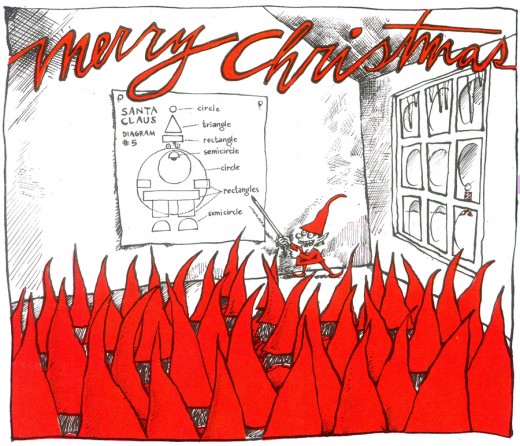 merry Christmas
SANTA
CLAUS
DIAGRAM
#5
circle
triangle
rectangle
semicircle
circle
rectangles
semicircle